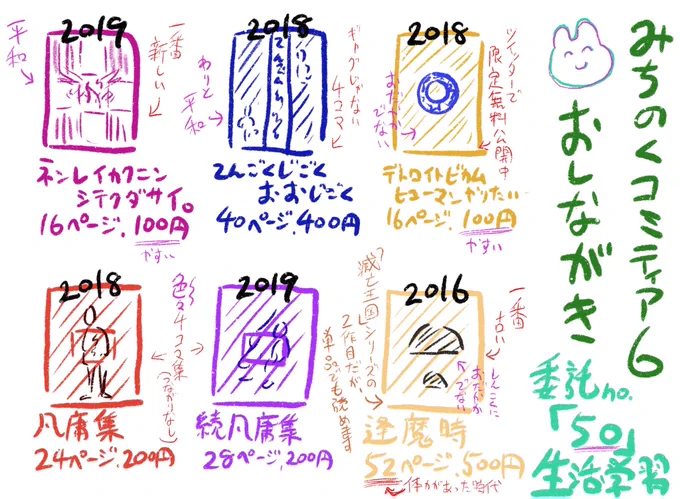 みちのくコミティア6
おしながき
委託no.
「50」
生活学習
2018
ツイッターで
限定無料公開中
おだやか
でない
デトロイトビカム
ヒューマンやりたい
16ページ.100円
やすい
2018
ギャグじゃない
4コマ
わりと
平和
てんごくじごく
おおじごく
40ページ.400円
2019
一番
新しい
平和
ネンレイカクニン
シテクダサイ。
16ページ.100円
やすい
2016
一番
古い
しんこくに
おだやか
でない
「滅亡王国」シリーズの
2作目だが
単品でも読めます
逢魔時
52ページ.500円
体力があった時代
2019
続凡庸集
28ページ.200円
色々4コマ集
(つながりなし)
2018
凡庸集
24ページ.200円